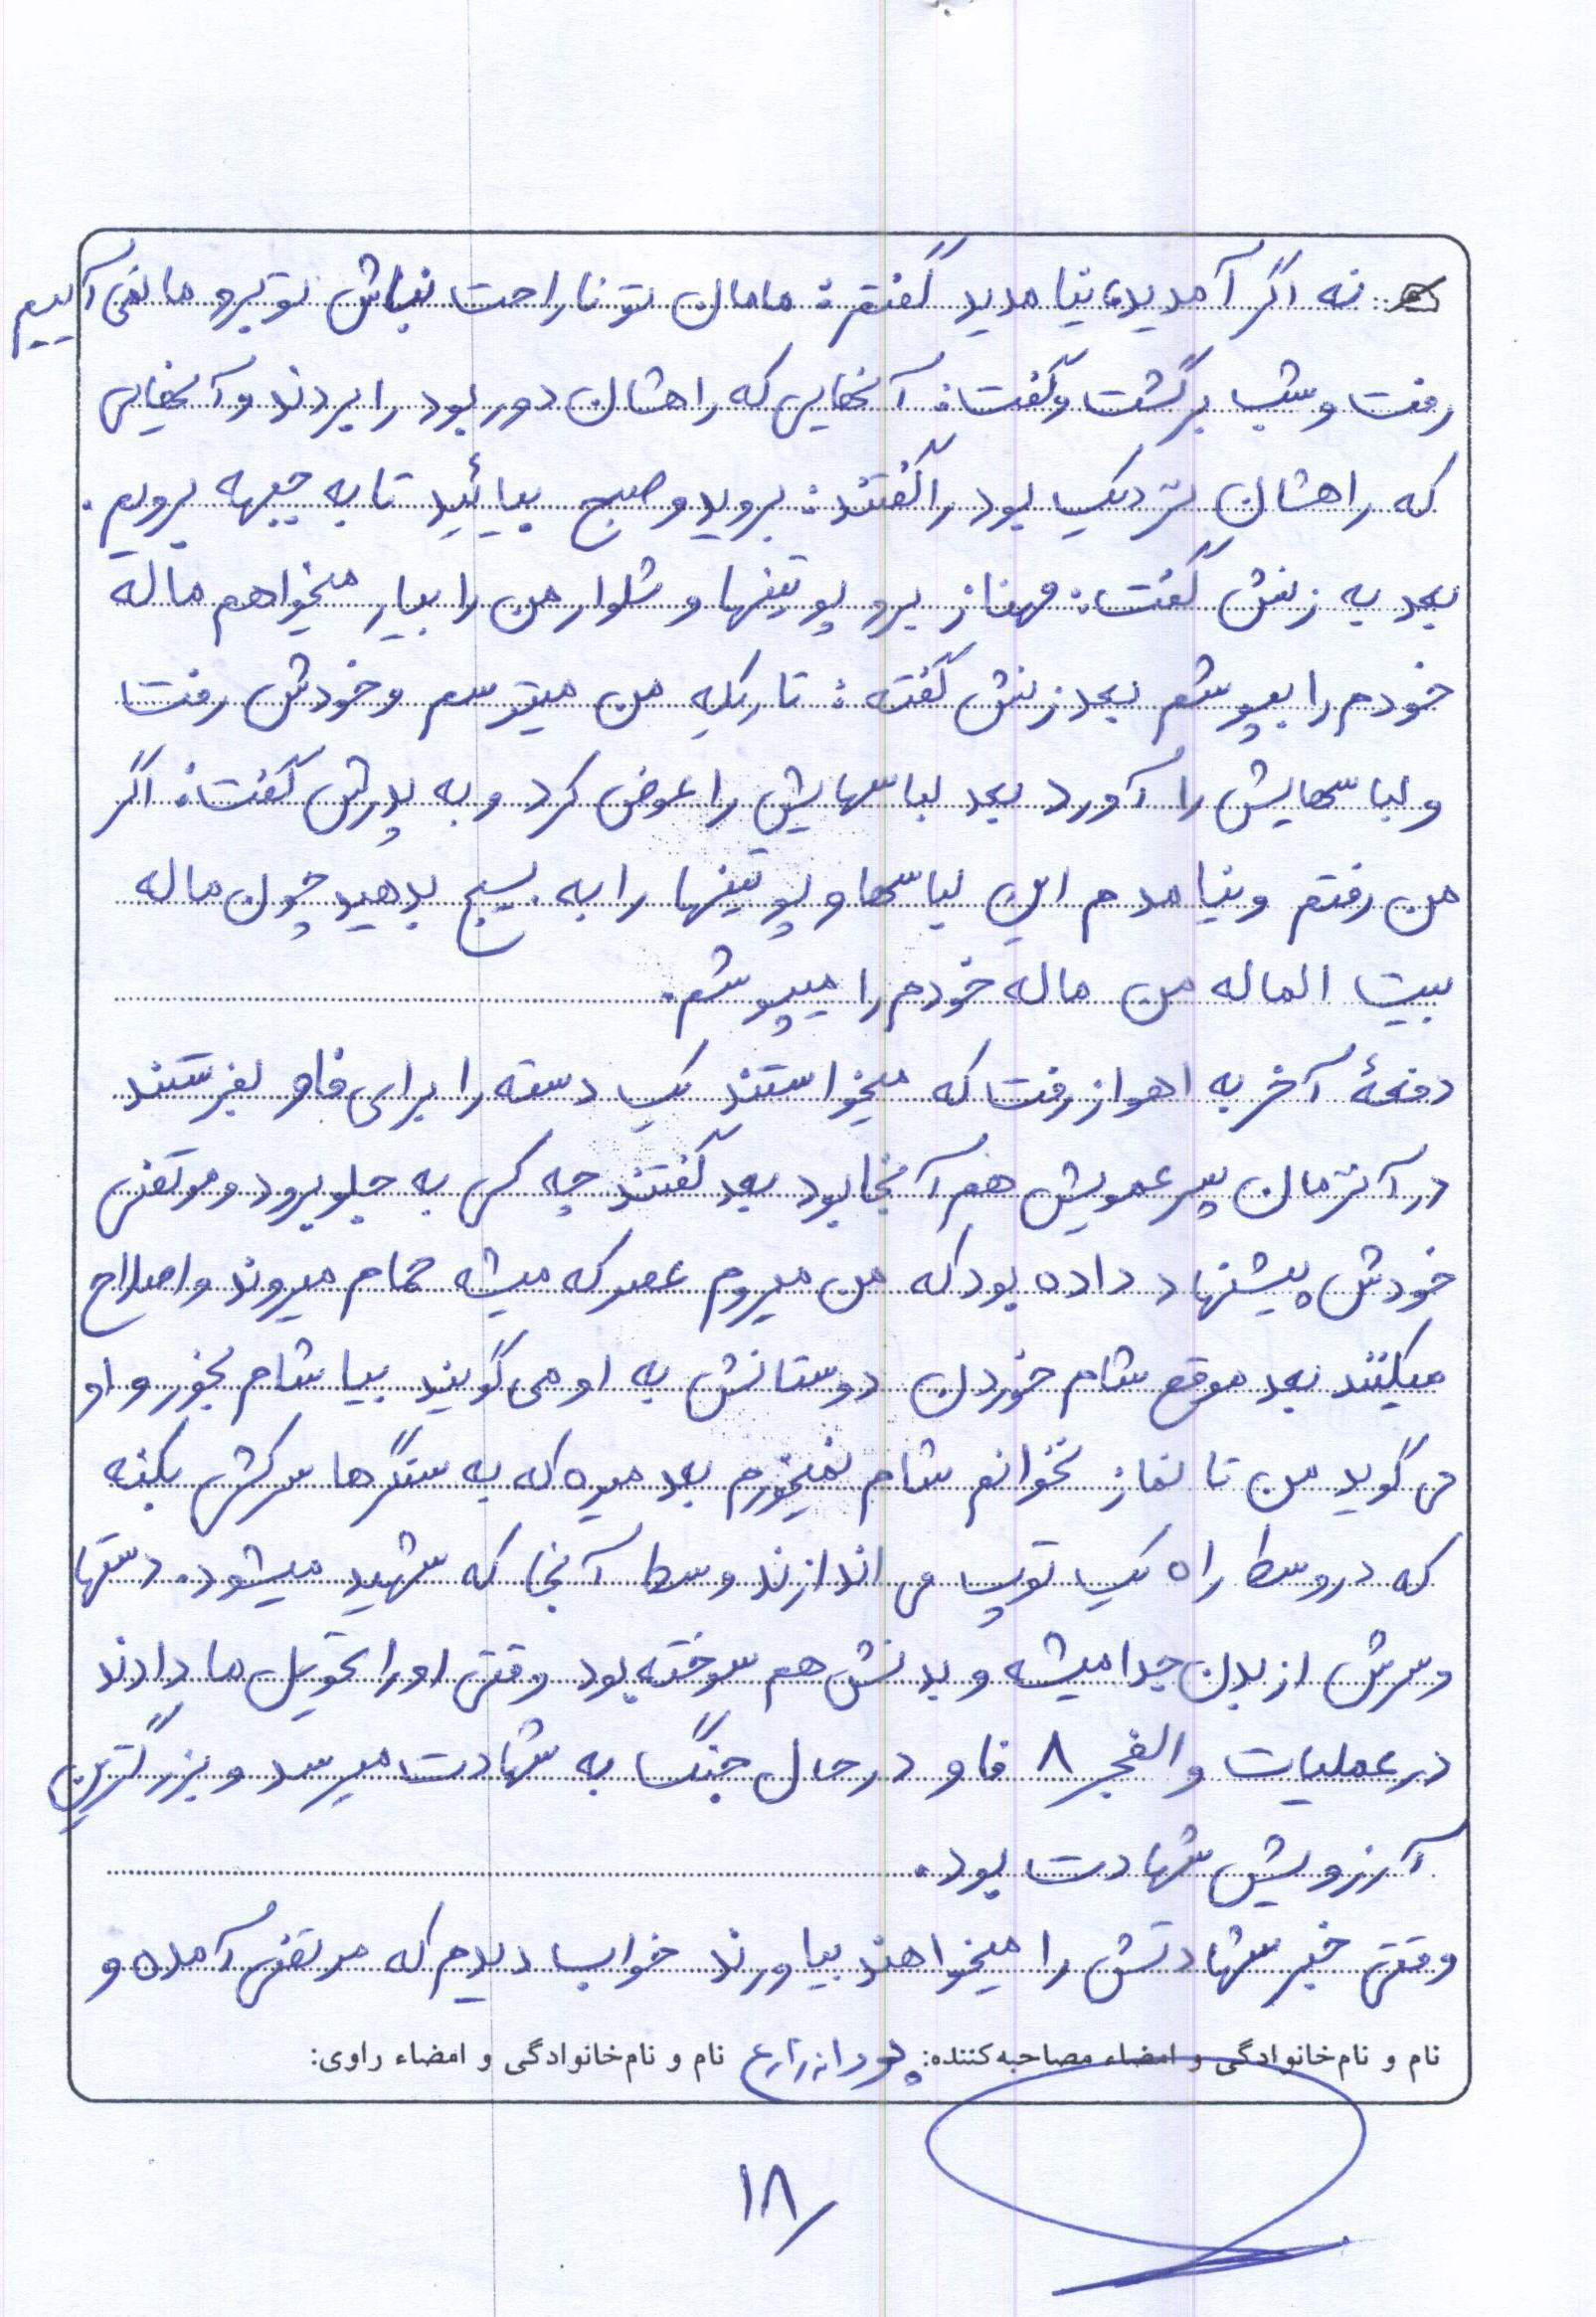 نه اگر آمدید، نیامدید گفتم: مامان تو ناراحت نباش تو برو ما نمی آییم
رفت و شب برگشت و گفت: آنهایی که راهشان دور بود را بردند و آنهایی
که راهشان نزدیک بود را گفتند: بروید و صبح بیائید تا به جبهه برویم.
بعد به زنش گفت: مهناز برو پوتینها و شلوار من را بیار میخواهم ماله
خودم را بپوشم بعد زنش گفته: تاریکه من میترسم و خودش رفت
و لباسهایش را آورد بعد لباسهایش را عوض کرد و به پدرش گفت: اگر
من رفتم و نیامدم این لباسها و پوتینها را به بسیج بدهید چون ماله
بیت الماله من ماله خودم را میپوشم.
دفعهٔ آخر به اهواز رفت که میخواستند یک دسته را برای فاو بفرستند
در آنزمان پسر عمویش هم آنجا بود بعد گفتند چه کسی به جلو برود و مرتضی
خودش پیشنهاد داده بود که من میروم عصر که میشه حمام میروند و اصلاح
میکنند بعد موقع شام خوردن دوستانش به او می گویند بیا شام بخور و او
می گوید من تا نماز نخوانم شام نمیخورم بعد میره که به سنگرها سرکشی بکنه
که در وسط راه یک توپ می اندازند وسط آنجا که شهید میشود. دستها
و سرش از بدن جدا میشه و بدنش هم سوخته بود وقتی او را تحویل ما دادند
در عملیات والفجر ۸ فاو در حال جنگ به شهادت میرسد و بزرگترین
آرزویش شهادت بود.
وقتی خبر شهادتش را میخواهند بیاورند خواب دیدم که مرتضی آمده و
نام و نام‌خانوادگی و امضاء مصاحبه‌کننده: نام و نام‌خانوادگی و امضاء راوی:
۱۸/